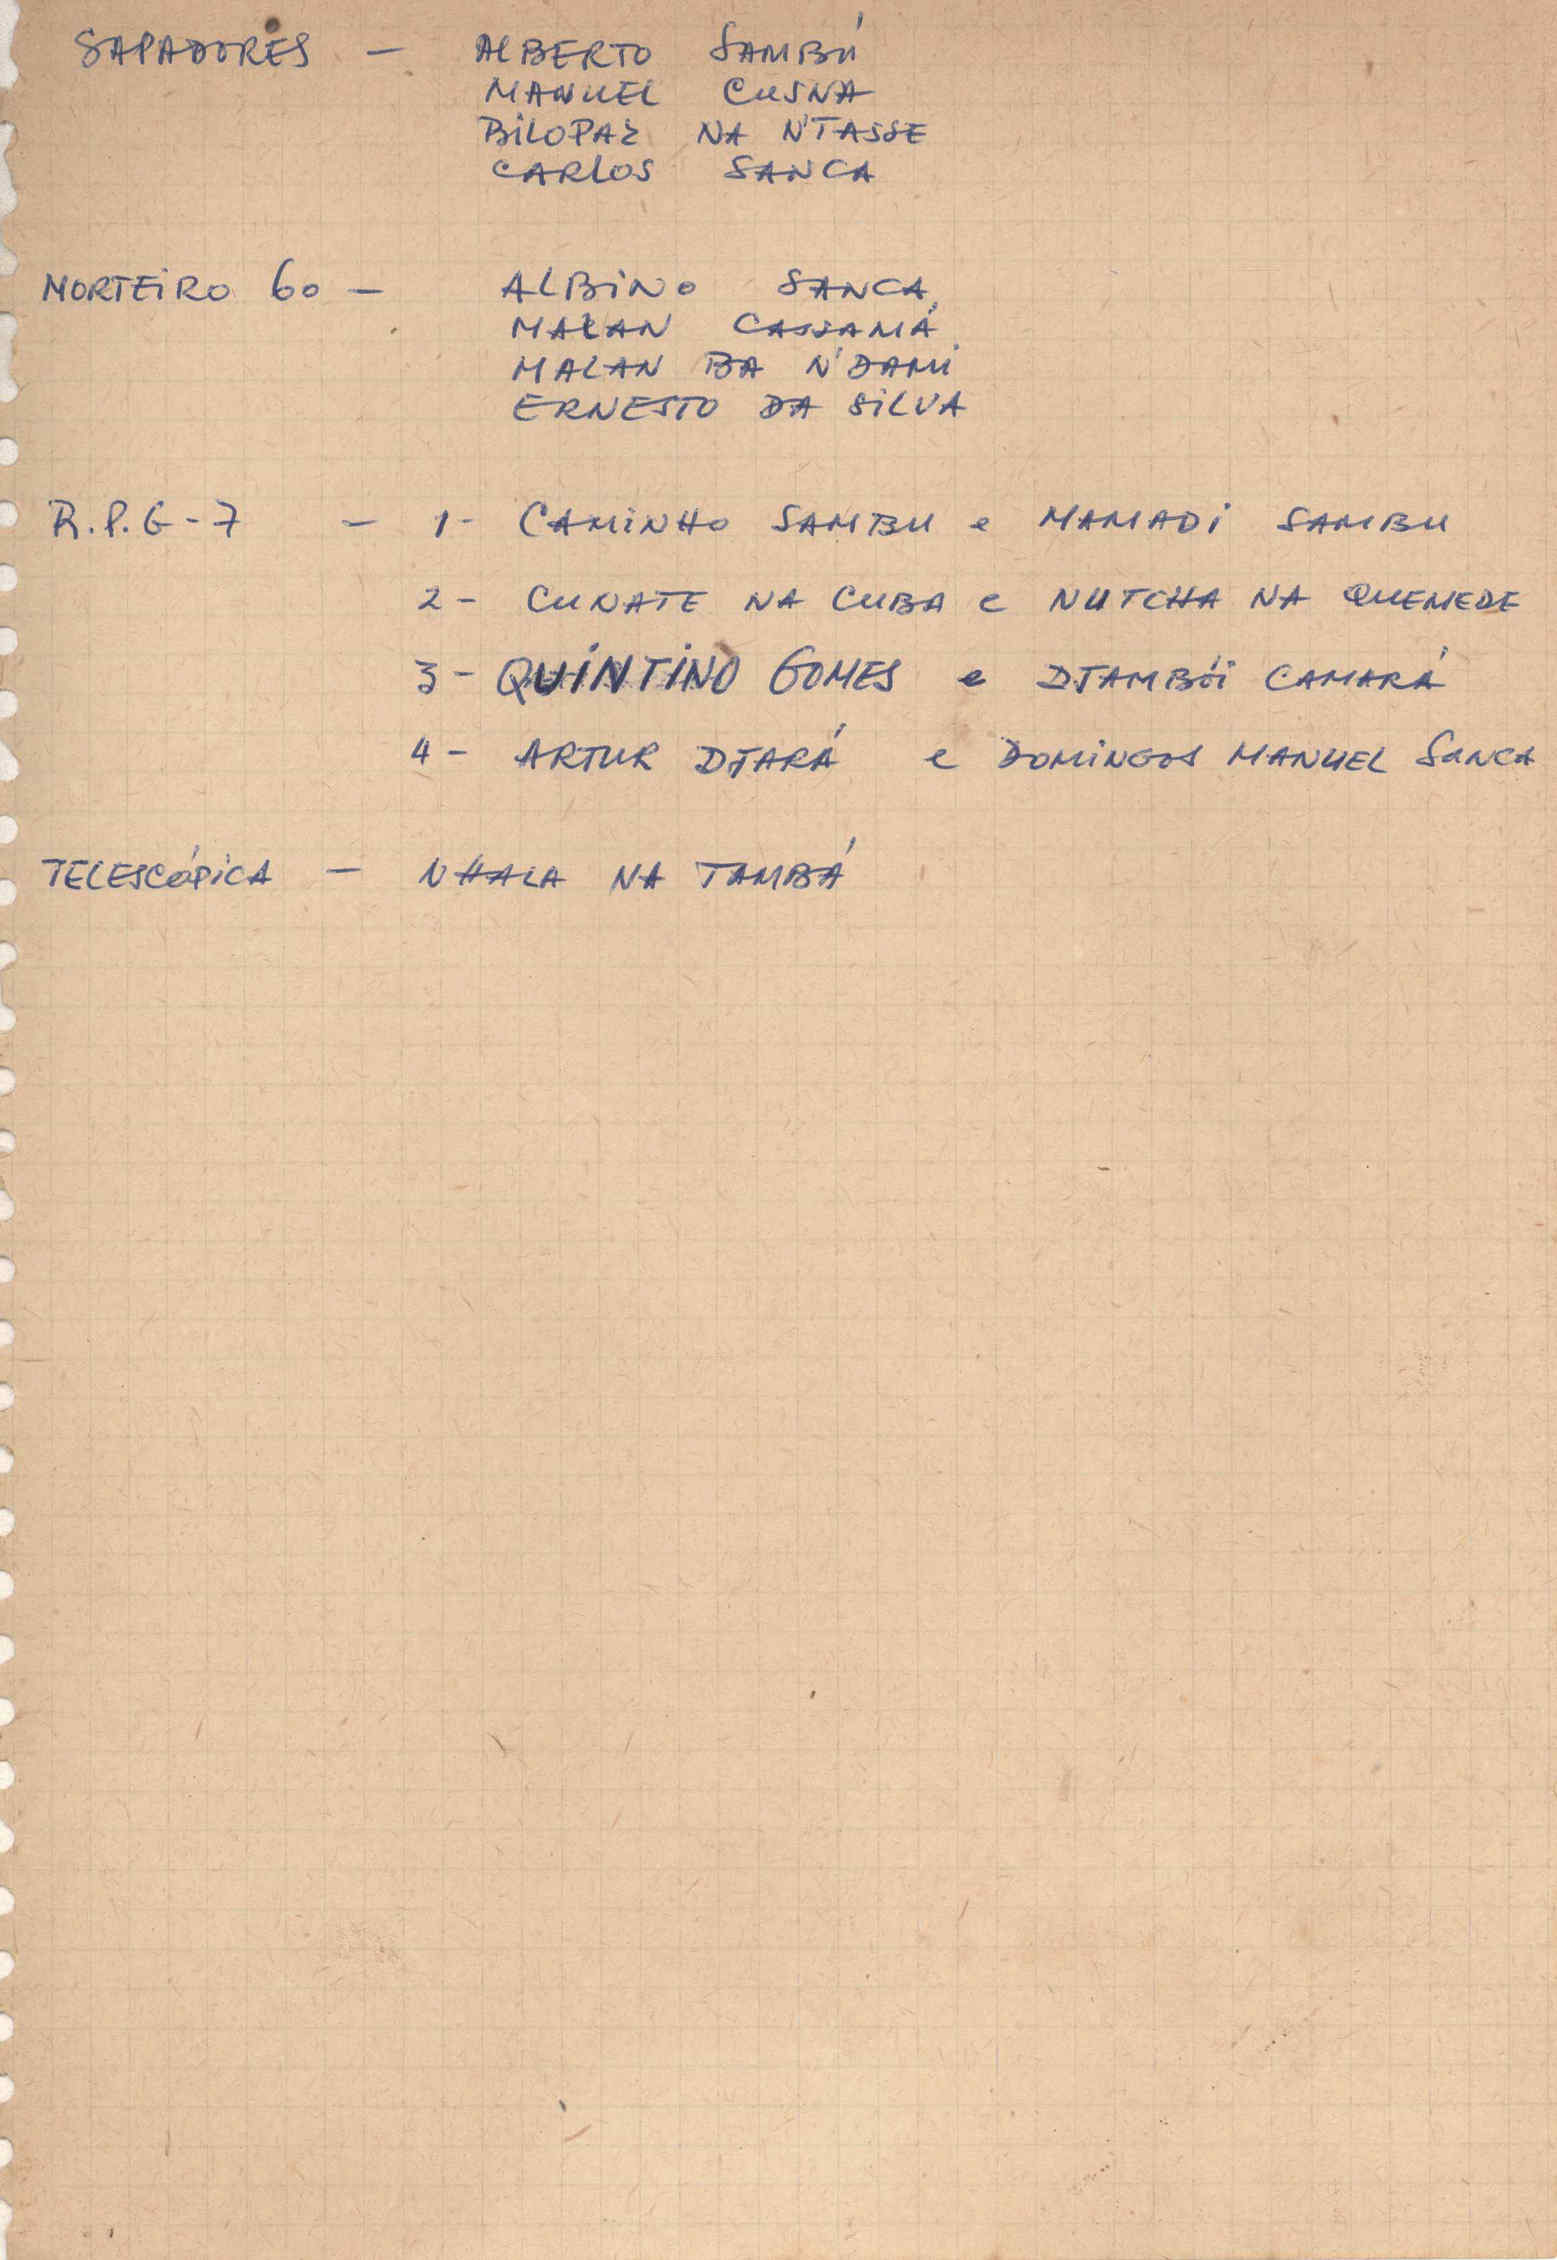 SAPADORES — ALBERTO SAMBÚ
MANUEL CUSNA
BILOPAZ NA N'TASSE
CARLOS SANCA
MORTEIRO 60 — ALBINO SANCA
MALAN CASSAMÁ
MALAN BA N'DAMI
ERNESTO DA SILVA
R.P.G-7 — 1- CAMINHO SAMBU e MAMADI SAMBU
2- CUNATE NA CUBA e NUTCHA NA QUEMEDE
3- QUINTINO GOMES e DJAMBÓI CAMARÁ
4- ARTUR DJARÁ e DOMINGOS MANUEL SANCA
TELESCÓPICA — NHALA NA TAMBÁ